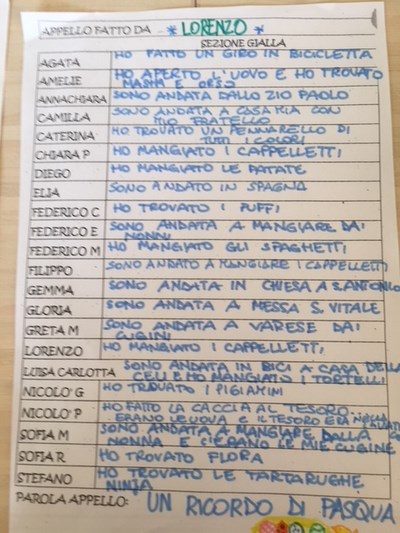 APPELLO FATTO DA * LORENZO *
SEZIONE GIALLA
AGATA HO FATTO UN GIRO IN BICICLETTA
AMELIE HO APERTO L'UOVO E HO TROVATO
MASHA E ORSO
ANNACHIARA SONO ANDATA DALLO ZIO PAOLO
CAMILLA SONO ANDATA A CASA MIA CON
MIO FRATELLO
CATERINA HO TROVATO UN PENNARELLO DI
TUTTI I COLORI
CHIARA P HO MANGIATO I CAPPELLETTI
DIEGO HO MANGIATO LE PATATE
ELIA SONO ANDATO IN SPAGNA
FEDERICO C HO TROVATO I PUFFI
FEDERICO E SONO ANDATA A MANGIARE DAI
NONNI
FEDERICO M HO MANGIATO GLI SPAGHETTI
FILIPPO SONO ANDATO A MANGIARE I CAPPELLETTI
GEMMA SONO ANDATA IN CHIESA A S. ANTONIO
GLORIA SONO ANDATA A MESSA S. VITALE
GRETA M SONO ANDATA A VARESE DAI
CUGINI
LORENZO HO MANGIATO I CAPPELLETTI
LUISA CARLOTTA SONO ANDATA IN BICI A CASA DELLA
E HO MANGIATO I TORTELLI
NICOLO' G HO TROVATO I PIGIAMINI
NICOLO' P HO FATTO LA CACCIA AL TESORO..
ERANO LE UOVA E IL TESORO ERA NELLA
SOFIA M SONO ANDATA A MANGIARE DALLA
NONNA E C'ERANO LE MIE CUGINE
SOFIA R HO TROVATO FLORA
STEFANO HO TROVATO LE TARTARUGHE
NINJA
PAROLA APPELLO: UN RICORDO DI PASQUA